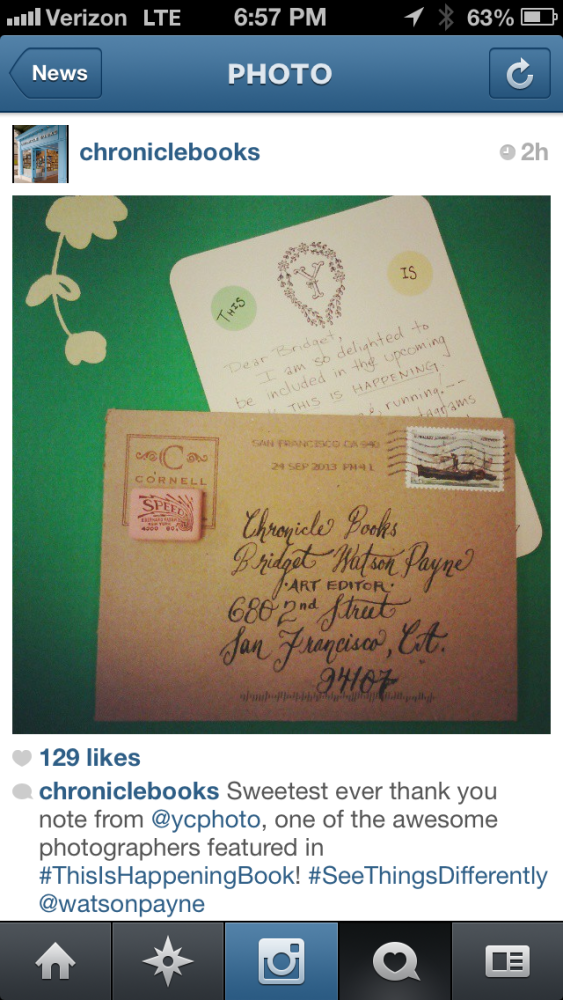 Verizon LTE 6:57 PM 63%
News PHOTO
chroniclebooks 2h
THIS
IS
Y
Dear Bridget,
I am so delighted to
be included in the upcoming
THIS IS HAPPENING,
running!--
C
CORNELL
SAN FRANCISCO CA 940
24 SEP 2013 PM 4 L
SPEED
Chronicle Books
Bridget Watson Payne
·ART EDITOR·
680 2nd Street
San Francisco, CA.
94107
129 likes
chroniclebooks Sweetest ever thank you
note from @ycphoto, one of the awesome
photographers featured in
#ThisIsHappeningBook! #SeeThingsDifferently
@watsonpayne